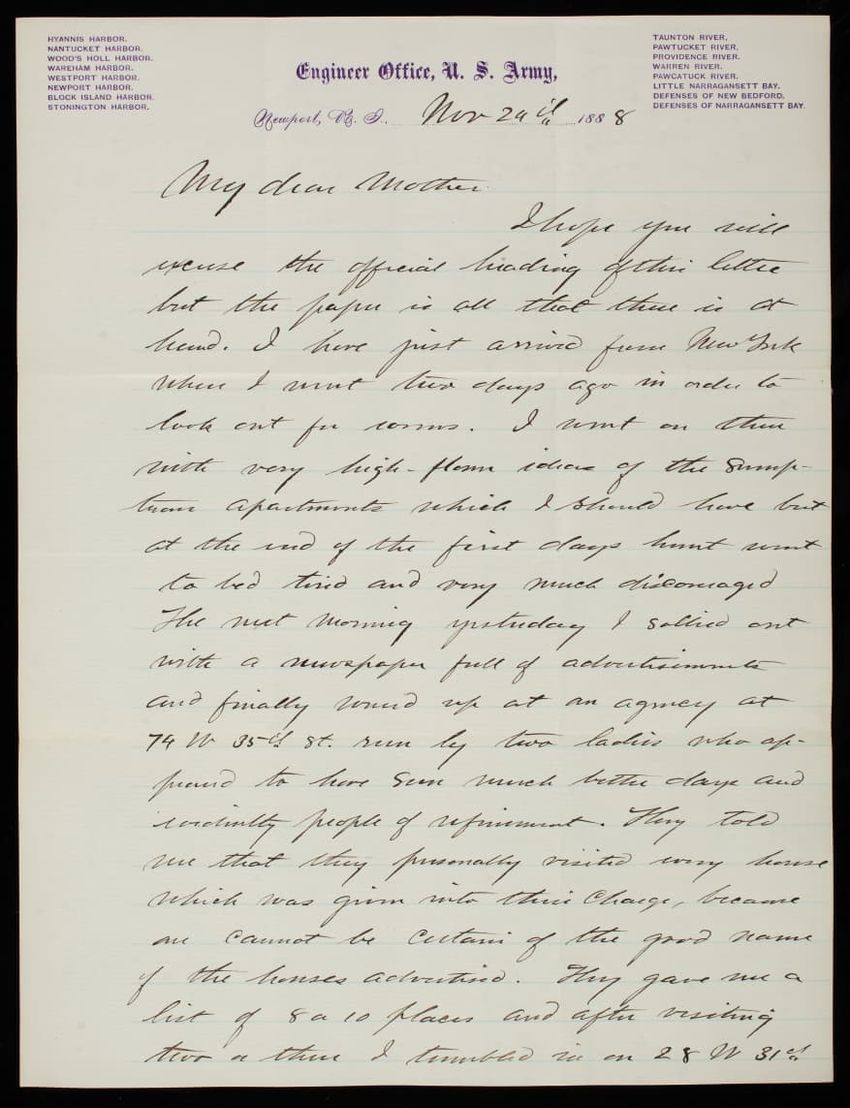 HYANNIS HARBOR.
NANTUCKET HARBOR.
WOOD'S HOLL HARBOR.
WAREHAM HARBOR.
WESTPORT HARBOR.
NEWPORT HARBOR.
BLOCK ISLAND HARBOR.
STONINGTON HARBOR.
Engineer Office, U. S. Army,
TAUNTON RIVER,
PAWTUCKET RIVER,
PROVIDENCE RIVER.
WARREN RIVER.
PAWCATUCK RIVER.
LITTLE NARRAGANSETT BAY.
DEFENSES OF NEW BEDFORD.
DEFENSES OF NARRAGANSETT BAY.
Newport, R. I., Nov 1888
My dear Mother
I hope you will
excuse the official heading of this letter
but the paper is all that there is at
hand. I have just arrived from New York
where I went two days ago in order to
look out for rooms. I went on there
with very high-flown ideas of the sump-
tuous apartments which I should have but
at the end of the first days hunt went
to bed tired and very much discouraged
The next morning yesterday I sallied out
with a newspaper full of advertisements
and finally wound up at an agency at
74 W 35th St. run by two ladies who ap-
peared to have seen much better days and
evidently people of refinement. They told
me that they personally visited every house
which was given into their charge, because
one cannot be certain of the good name
of the houses advertised. They gave me a
list of 8 or 10 places and after visiting
two or three I tumbled in on 28 W 31st